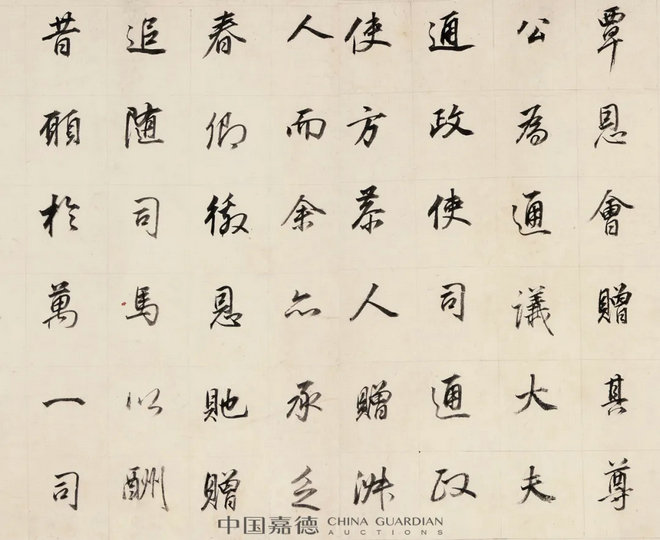 覃恩會贈其尊
公為通議大夫
通政使司通政
使方恭人贈淑
人而余亦承乏
春卿徼恩貤贈
追随司馬以酬
昔願於萬一司
中国嘉德 CHINA GUARDIAN
AUCTIONS